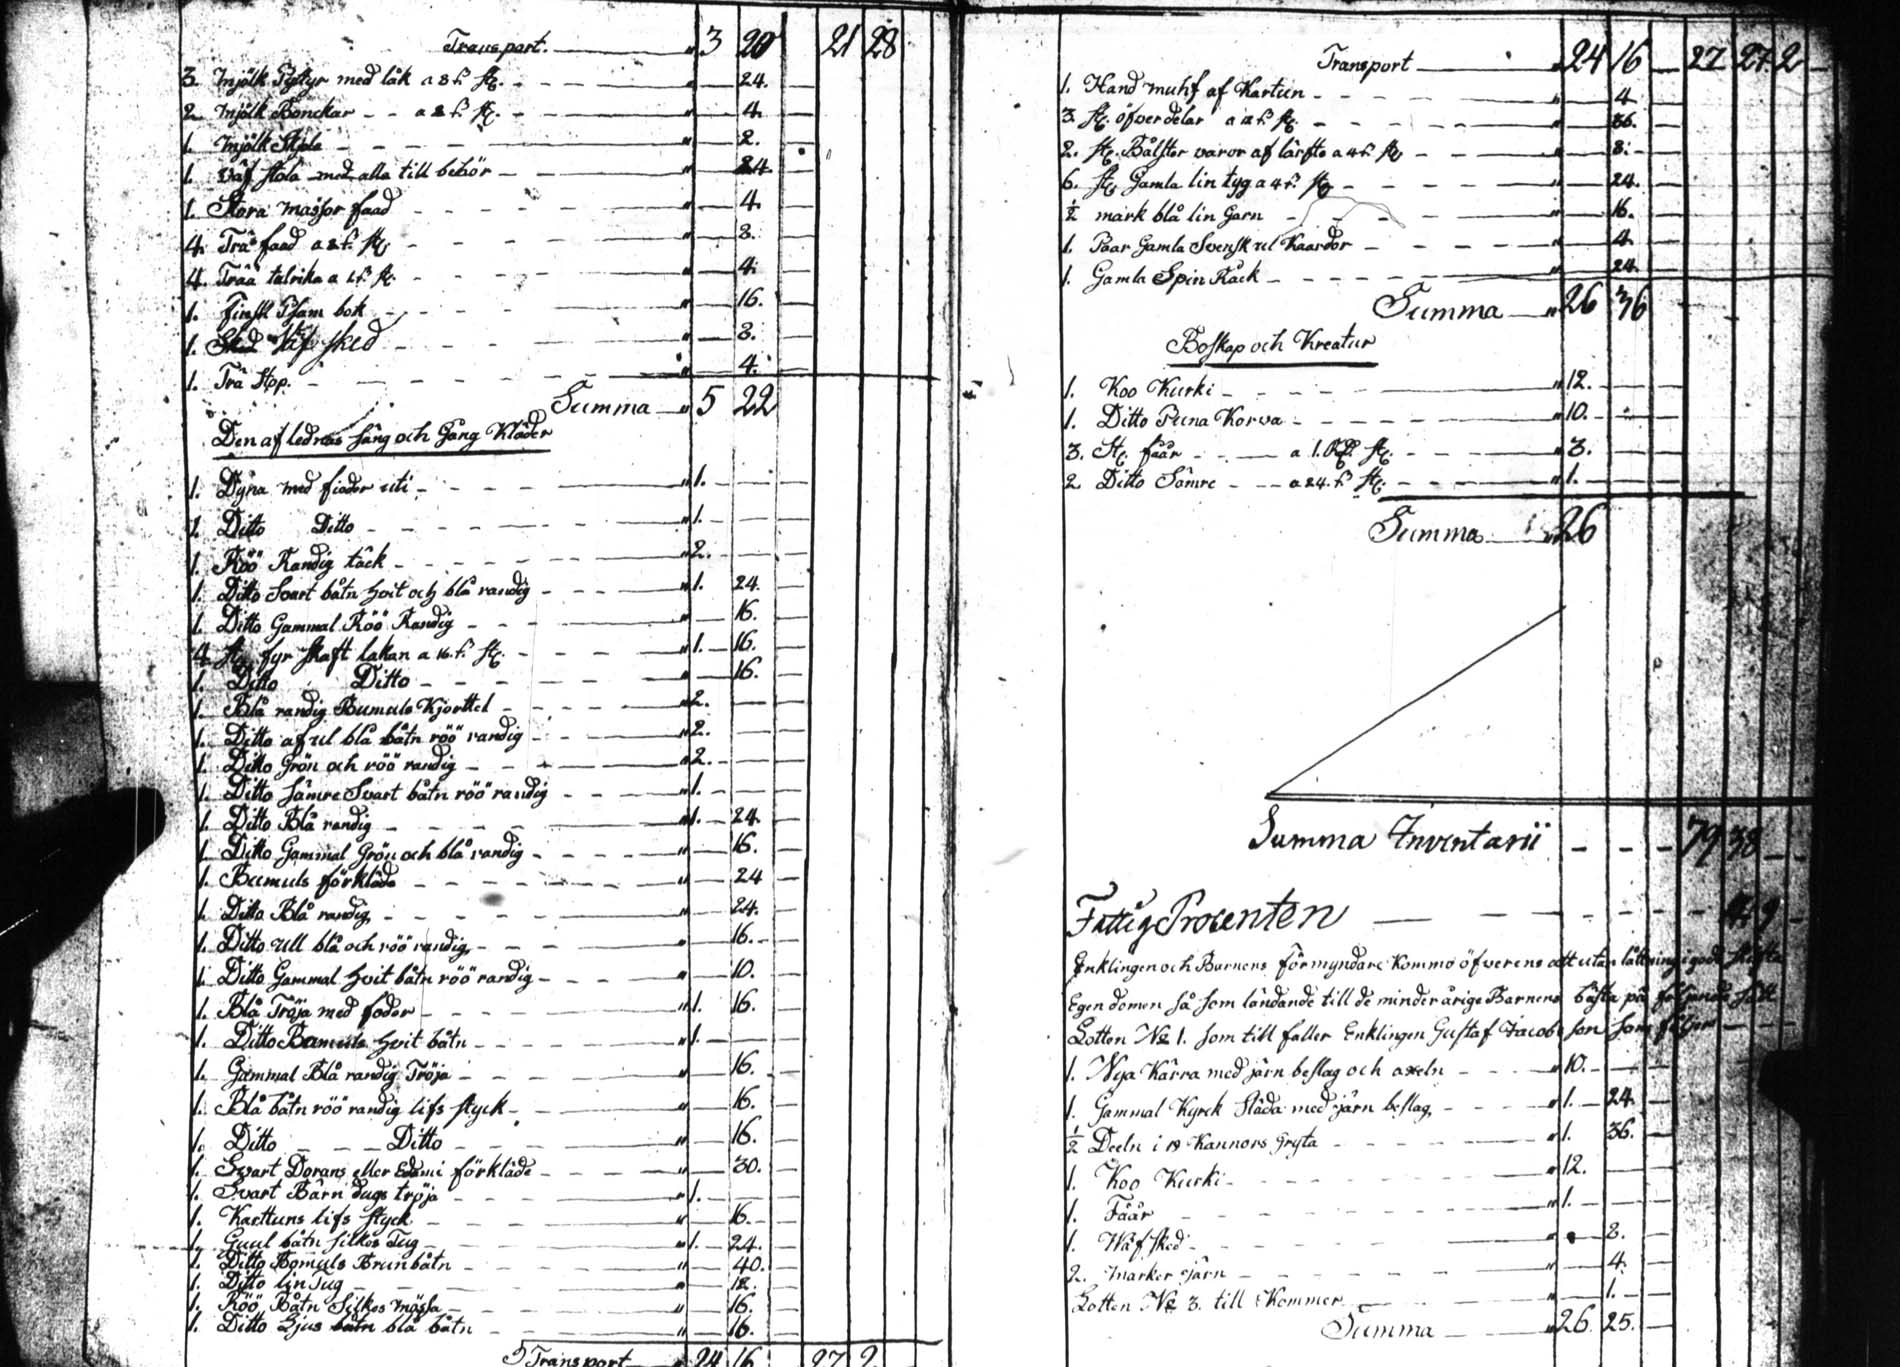 Transport " 3 20 21 28
3. Mjölk Pyttyr med låk a 8 f. St. " 24.
2. Mjölk Bonckar a 2 f. St. " 4.
1. Mjölk Skola " 2.
1. Väf stola med alla till behör " 24.
1. Stora Massor faad " 4.
4. Trä faad a 2 f. St. " 8.
4. Trää talrika a 1 f. St. " 4.
1. Finsk Psam bok " 16.
1. Väf sked " 8.
1. Trä Stop. " 4.
Summa " 5 22
Den aflednas Säng och Gång Kläder
1. Dyna med fiador uti " 1.
1. Ditto Ditto " 1.
1. Röö Randig täck " 2.
1. Ditto Svart båtn hvit och blå randig " 1. 24.
1. Ditto Gammal Röö Randig " 16.
4 St. fyr skaft lakan a 16. f. St. " 1. 16.
1. Ditto Ditto " 16.
1. Blå randig Bumuls Kjorttel " 2.
1. Ditto af ul blå båtn röö randig " 2.
1. Ditto Grön och röö randig " 2.
1. Ditto Sämre Svart båtn röö randig " 1.
1. Ditto Blå randig " 1. 24.
1. Ditto Gammal Grön och blå randig " 16.
1. Bumuls förkläde " 24
1. Ditto Blå randig " 24.
1. Ditto ull blå och röö randig " 16.
1. Ditto Gammal hvit båtn röö randig " 10.
1. Blå Tröja med foder " 1. 16.
1. Ditto Bumuls hvit båtn " 1.
1. Gammal Blå randig Tröja " 16.
1. Blå båtn röö randig lifs styck " 16.
1. Ditto Ditto " 16.
1. Svart Dorans eller förkläde " 30.
1. Svart Bärn dugs tröja " 1.
1. Karttuns lifs styck " 16.
1. Guul båtn silkes Tug " 1. 24.
1. Ditto Bomuls Brun båtn " 40.
1. Ditto lin Tug " 12.
1. Röö Båtn Silkes mössa " 16.
1. Ditto Ljus blå båtn " 16.
Transport " 24 16 27 2
Transport " 24 16 27 27 2
1. Hand muhf af Kartun " 4
3. St. öfverdelar a 12 f. St. " 36.
2. St. Bålster varor af lärfte a 4 f. St. " 8.
6. St. Gamla lin tyg a 4 f. St. " 24.
½ mark blå lin Garn " 16.
1. Paar Gamla Svensk ul Kaardor " 4
1. Gamla Spin Råck " 24.
Summa " 26 36
Boskap och Kreatur
1. Koo Kurki " 12.
1. Ditto Puna Korva " 10.
3. St. fåår a 1. Rd. St. " 3.
2 Ditto Sämre a 24. f. St. " 1.
Summa " 26
Summa Inventarii 79 38
Fattig Procenten 9
Enklingen och Barnens förmyndare kommo öfverens att utan låttning i godo skifta
Egendomen så som ländande till de minder ärige Barnens bästa på följande sätt
Lotten No 1. som till faller Enklingen Gustaf Jacobsson som följer
1. Nya Kärra med järn beslag och axeln " 10.
1. Gammal Kyrck Släda med järn beslag " 1. 24.
½ Deeln i 18 Kannors Gryta " 1. 36.
1. Koo Kurki " 12.
1. Fåår " 1.
1. Wäfsked " 8.
2. marker järn " 4.
Lotten No 3. till Kommer " 1.
Summa " 26. 25.